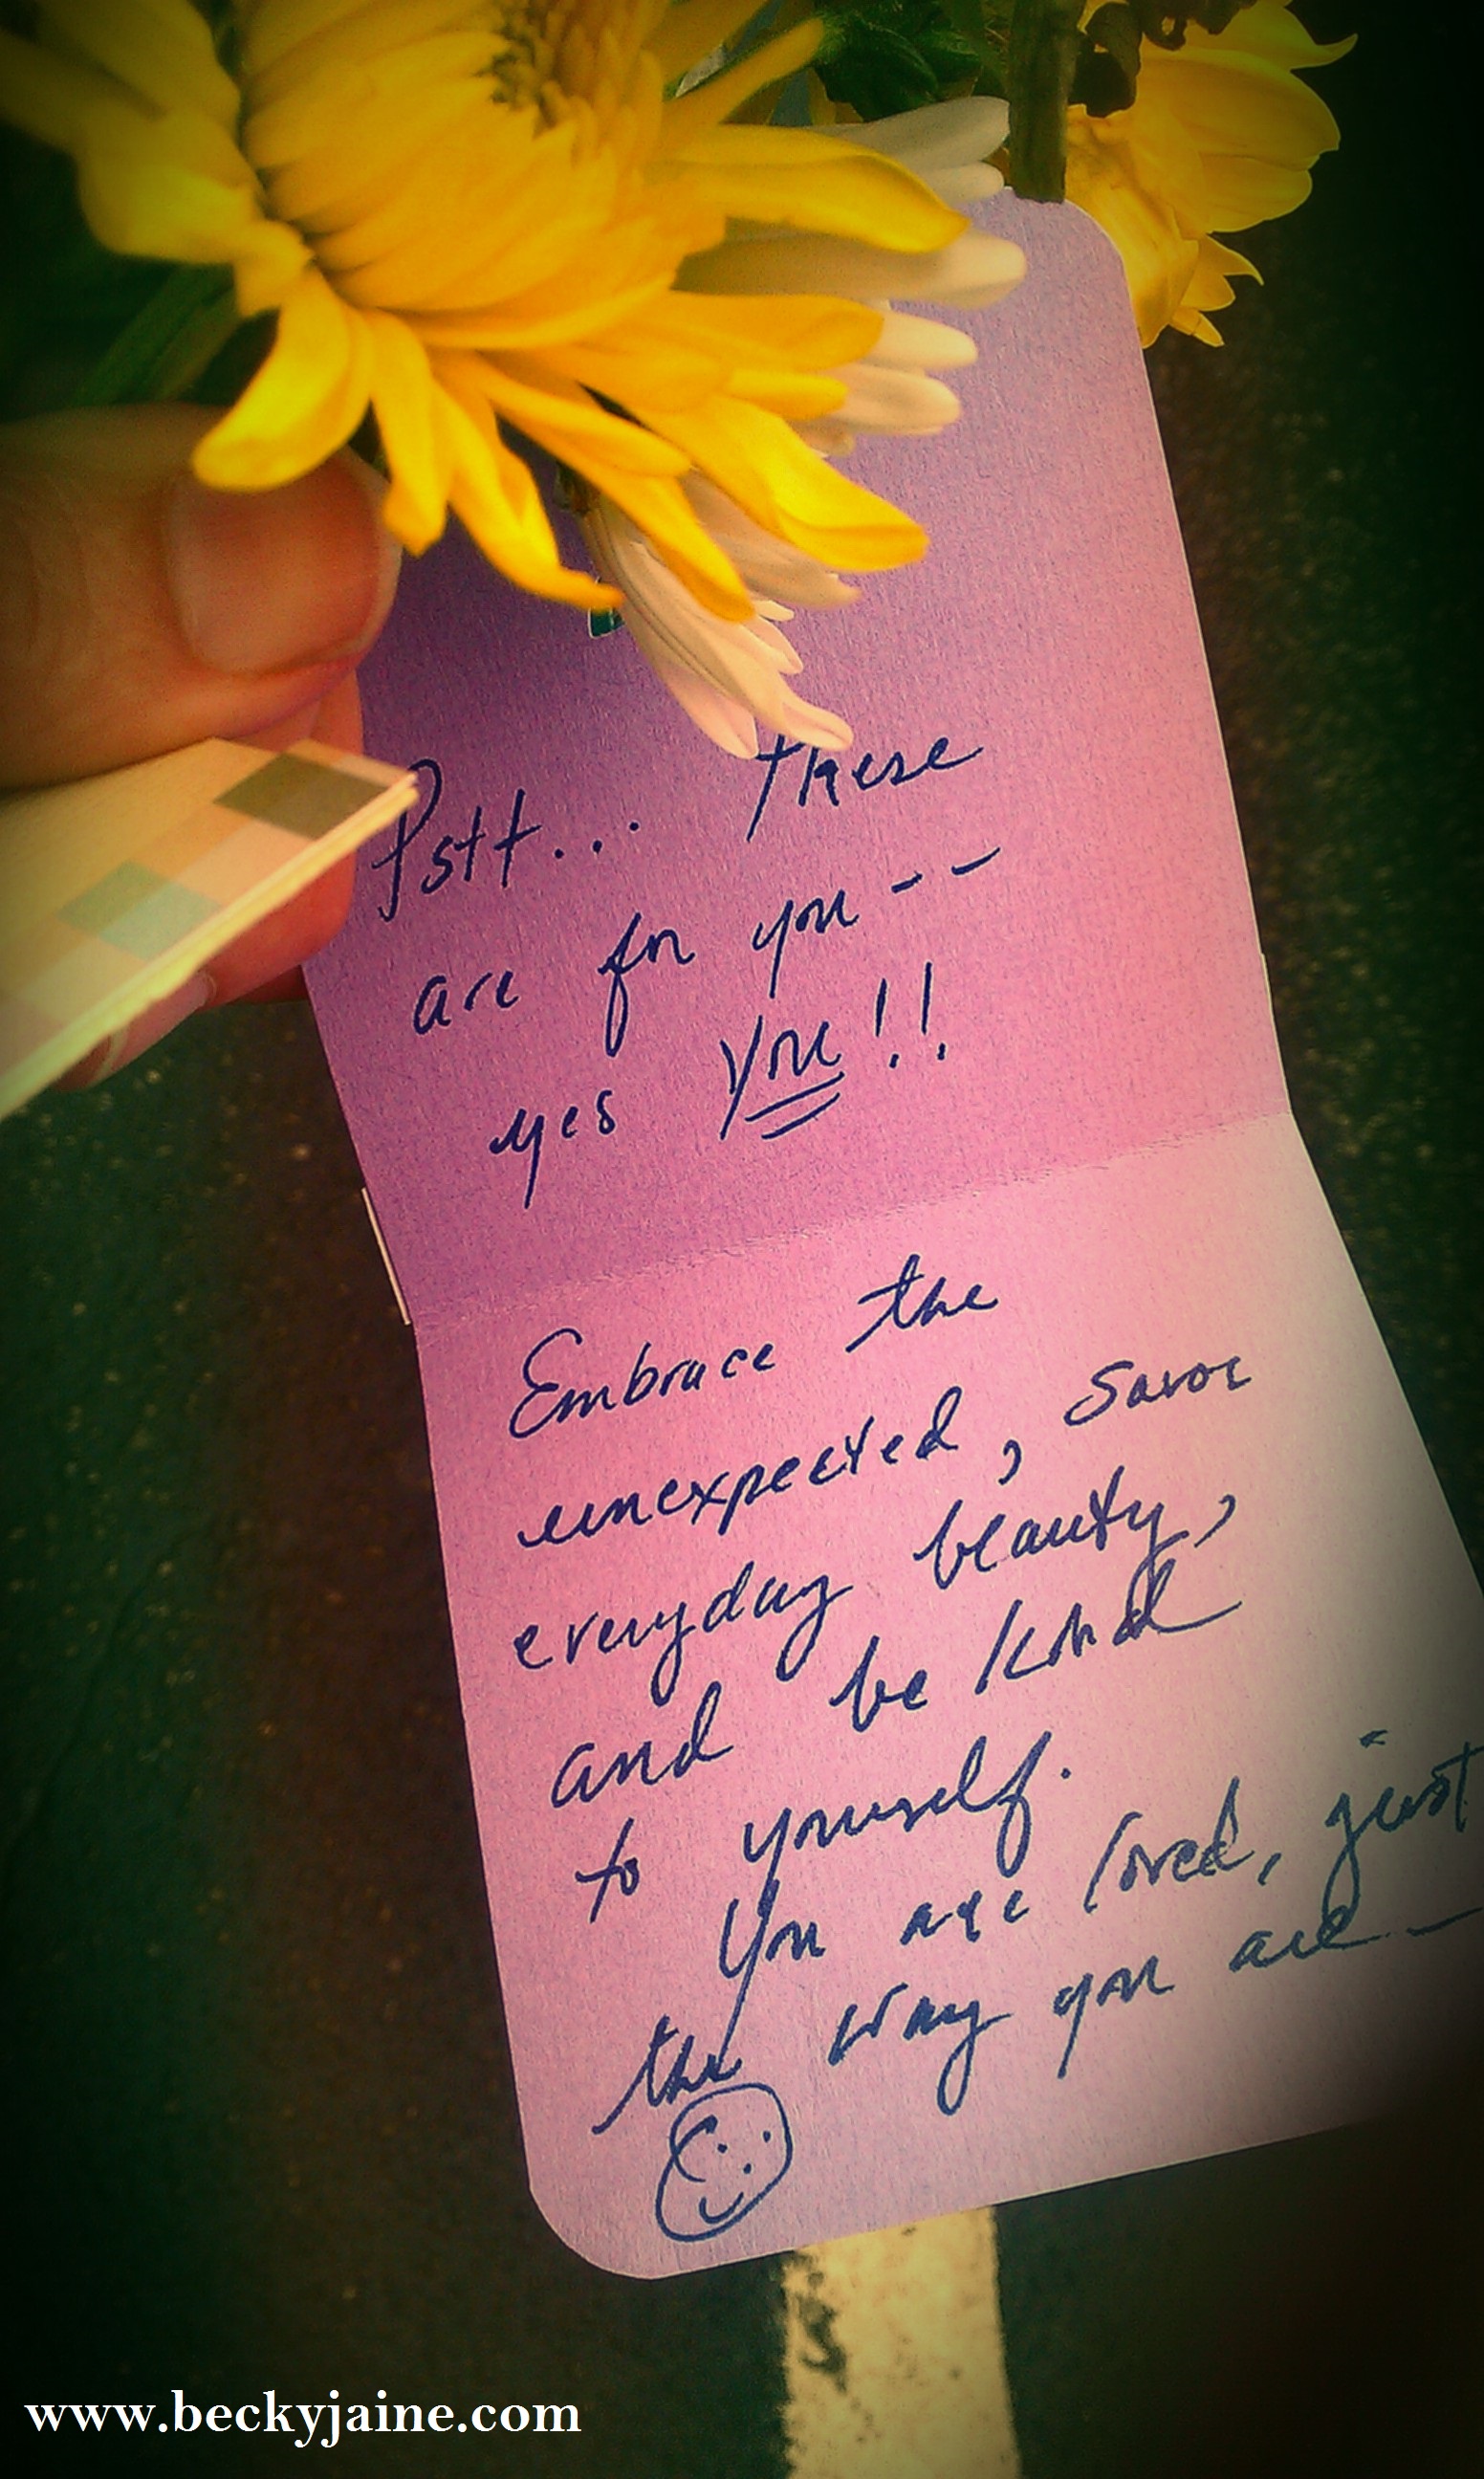 Pstt... these
are for you--
yes you!!
Embrace the
unexpected, savor
everyday beauty,
and be kind
to yourself.
You are loved, just
the way you are-
www.beckyjaine.com